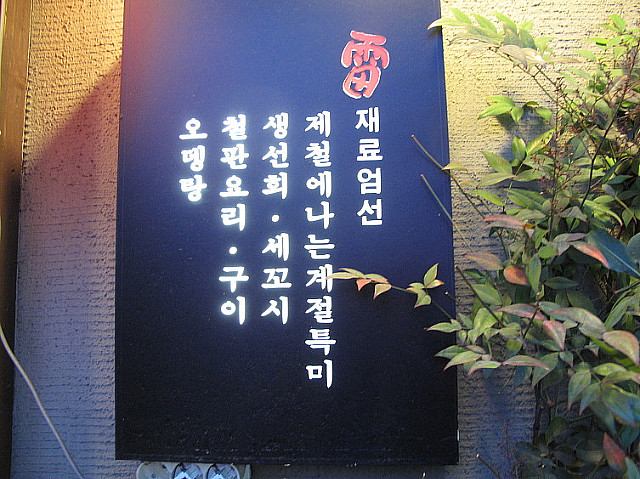 雷
재료엄선
제철에나는계절특미
생선회·세꼬시
철판요리·구이
오뎅탕